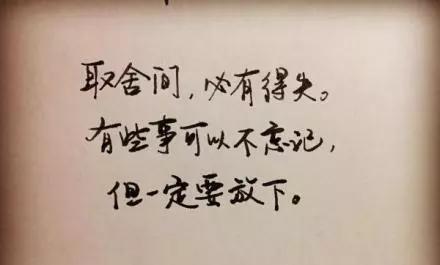 取舍间，必有得失。
有些事可以不忘记，
但一定要放下。